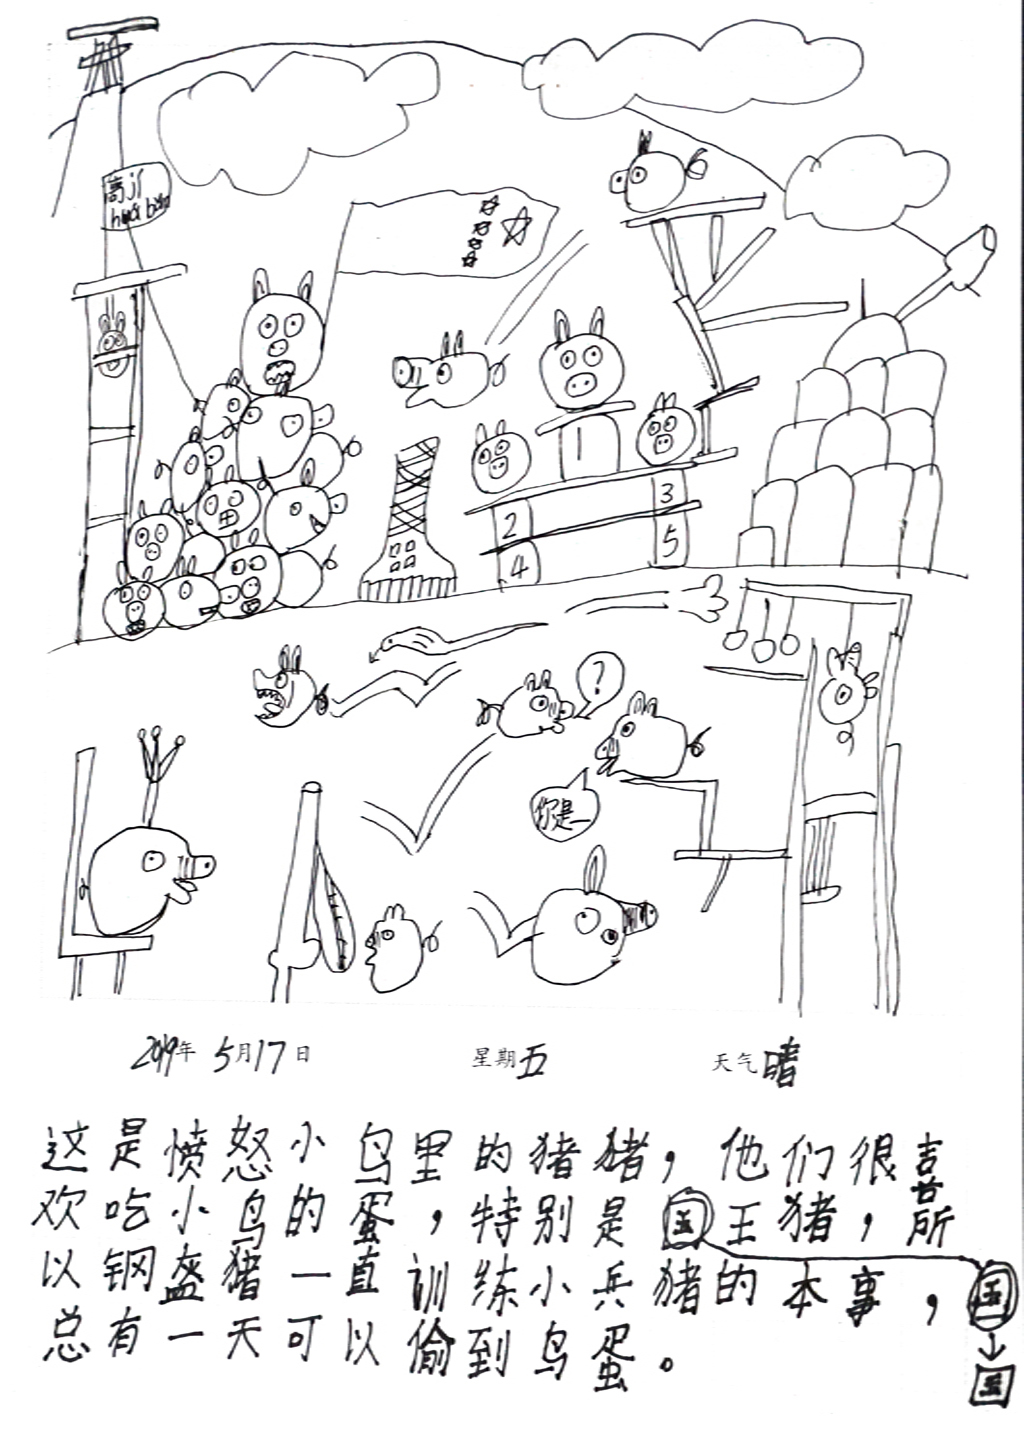 高jí
6
1
2
3
4
5
?
你是一
2019年 5月17日 星期五 天气晴
这是愤怒小鸟里的猪猪，他们很喜
欢吃小鸟的蛋，特别是国王猪，所
以钢盔猪一直训练小兵猪的本事，
总有一天可以偷到鸟蛋。
国
↓
国